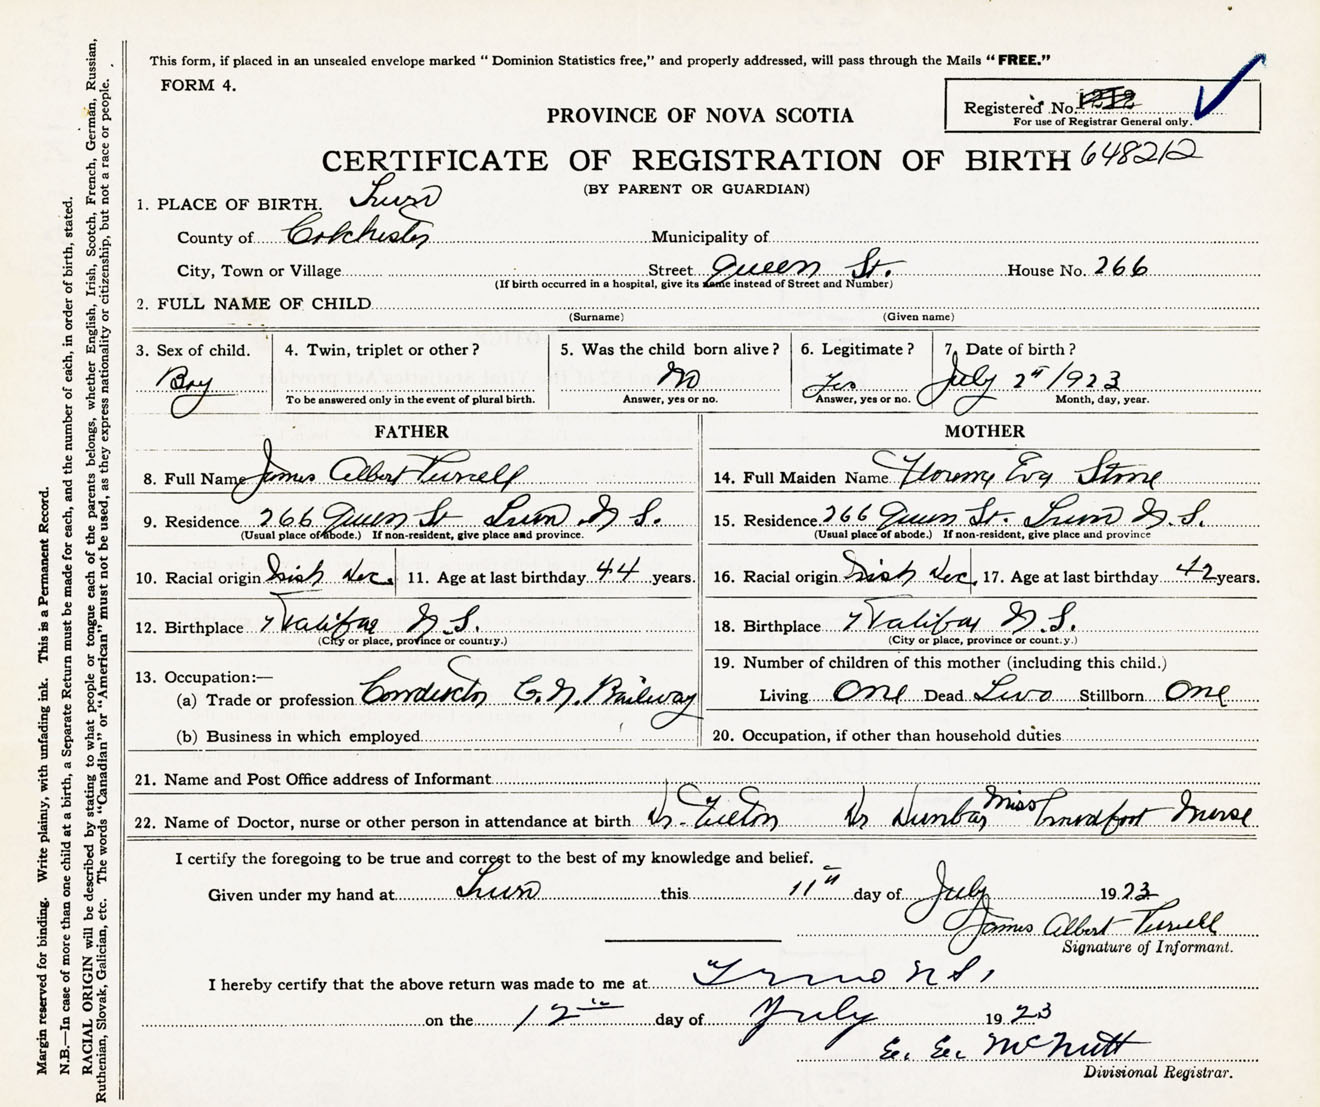 This form, if placed in an unsealed envelope marked "Dominion Statistics free," and properly addressed, will pass through the Mails "FREE."
FORM 4.
Registered No.
For use of Registrar General only.
PROVINCE OF NOVA SCOTIA
CERTIFICATE OF REGISTRATION OF BIRTH 648212
(BY PARENT OR GUARDIAN)
1. PLACE OF BIRTH. Truro
County of Colchester Municipality of
City, Town or Village Street Queen St. House No. 266
(If birth occurred in a hospital, give its name instead of Street and Number)
2. FULL NAME OF CHILD
(Surname) (Given name)
3. Sex of child. 4. Twin, triplet or other? 5. Was the child born alive? 6. Legitimate? 7. Date of birth?
Boy No Yes July 2nd 1923
To be answered only in the event of plural birth. Answer, yes or no. Answer, yes or no. Month, day, year.
FATHER MOTHER
8. Full Name James Albert 14. Full Maiden Name Eva Stone
9. Residence 266 Queen St Truro N.S. 15. Residence. 266 Queen St. Truro N.S.
(Usual place of abode.) If non-resident, give place and province. (Usual place of abode.) If non-resident, give place and province
10. Racial origin Irish Dec. 11. Age at last birthday 44 years. 16. Racial origin Irish Dec. 17. Age at last birthday 42 years.
12. Birthplace Halifax N.S. 18. Birthplace Halifax N.S.
(City or place, province or country.) (City or place, province or country.)
13. Occupation:— 19. Number of children of this mother (including this child.)
(a) Trade or profession Conductor C.N. Railway Living One Dead Two Stillborn One
(b) Business in which employed 20. Occupation, if other than household duties
21. Name and Post Office address of Informant
22. Name of Doctor, nurse or other person in attendance at birth Dr. Dr Dunbar Miss Proudfoot Nurse
I certify the foregoing to be true and correct to the best of my knowledge and belief.
Given under my hand at Truro this 11th day of July 1923
James Albert
Signature of Informant.
I hereby certify that the above return was made to me at Truro N S,
on the 12th day of July 1923
E. E. McNutt
Divisional Registrar.
Margin reserved for binding. Write plainly, with unfading ink. This is a Permanent Record.
N.B.—In case of more than one child at a birth, a Separate Return must be made for each, and the number of each, in order of birth, stated.
RACIAL ORIGIN will be described by stating to what people or tongue each of the parents belongs, whether English, Irish, Scotch, French, German, Russian,
Ruthenian, Slovak, Galician, etc. The words "Canadian" or "American" must not be used, as they express nationality or citizenship, but not a race or people.